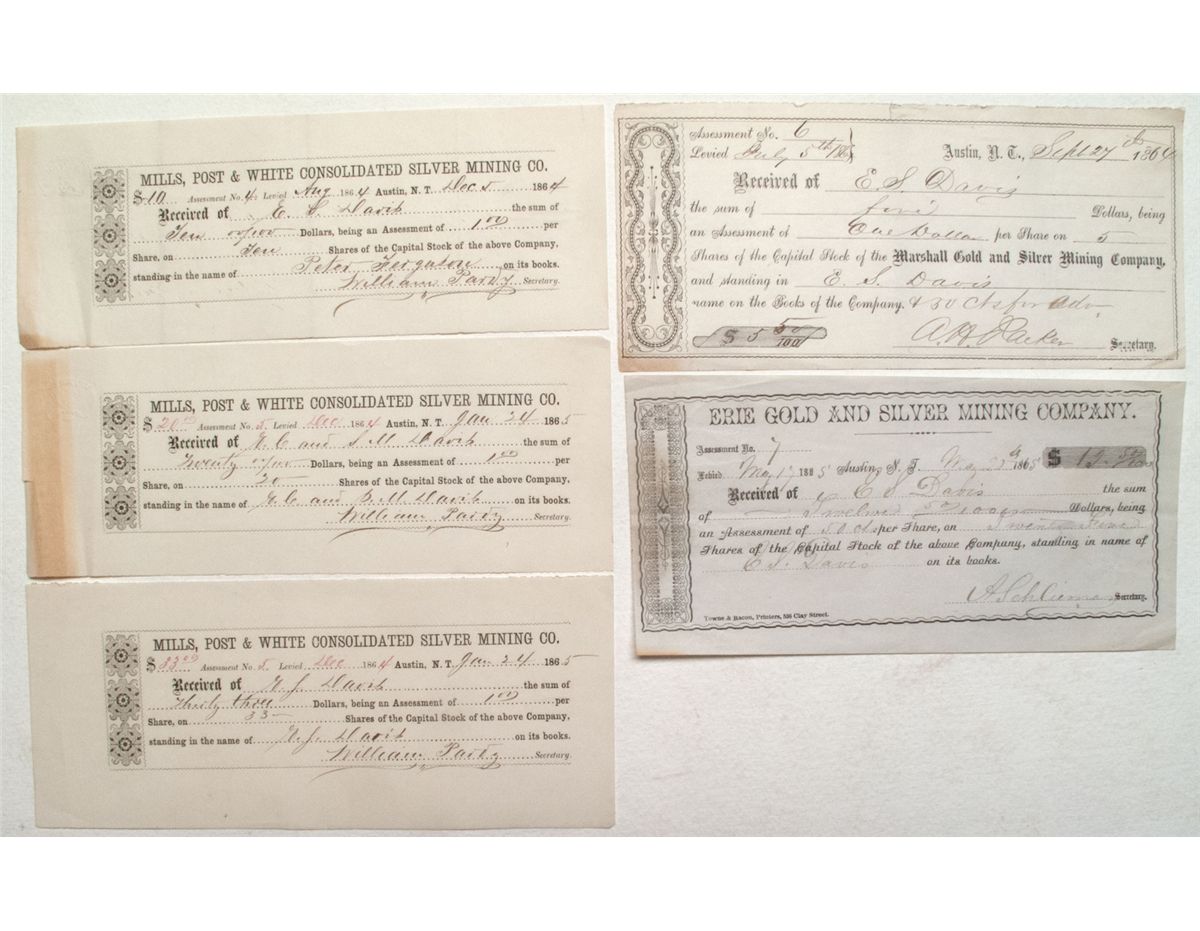 MILLS, POST & WHITE CONSOLIDATED SILVER MINING CO.
$10 Assessment No. 4 Levied Aug 1864 Austin, N. T. Dec 5 1864
Received of E S Davis the sum of
Ten 00/100 Dollars, being an Assessment of 1 00 per
Share, on Ten Shares of the Capital Stock of the above Company,
standing in the name of Peter Ferguson on its books.
William Pardy Secretary.
MILLS, POST & WHITE CONSOLIDATED SILVER MINING CO.
$20 00 Assessment No. 5. Levied Dec 1864 Austin, N. T. Jan 24 1865
Received of and Davis the sum of
Twenty Dollars, being an Assessment of 1 00 per
Share, on 20 Shares of the Capital Stock of the above Company,
standing in the name of and Davis on its books.
William Pardy Secretary.
MILLS, POST & WHITE CONSOLIDATED SILVER MINING CO.
$33 00 Assessment No. 5. Levied Dec 1864 Austin, N. T. Jan 24 1865
Received of Davis the sum of
Thirty three Dollars, being an Assessment of 1 00 per
Share, on 33 Shares of the Capital Stock of the above Company,
standing in the name of Davis on its books.
William Pardy Secretary.
Assessment No. 6
Levied July 5th Austin, N. T., Sept 27 1864
Received of E. S. Davis
the sum of five Dollars, being
an Assessment of One Dollar per Share on 5
Shares of the Capital Stock of the Marshall Gold and Silver Mining Company,
and standing in E. S. Davis
name on the Books of the Company. & 50 cts for adv.
$ 5 50/100 A. H. Parker Secretary.
ERIE GOLD AND SILVER MINING COMPANY.
Assessment No. 7
Levied May 17 1865 Austin, N. T. May 1865 $ 12.50/100
Received of E S Davis the sum
of Twelve 50/100 Dollars, being
an Assessment of 50 cts per Share, on Twenty five
Shares of the Capital Stock of the above Company, standing in name of
E. S. Davis on its books.
Secretary.
Towne & Bacon, Printers, 536 Clay Street.